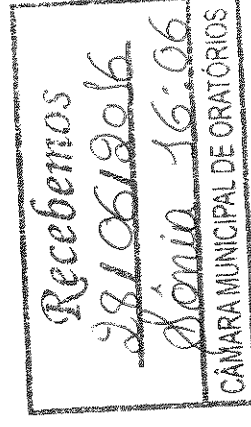 Recebemos
28/06/2016
Sônia 16:06
CÂMARA MUNICIPAL DE ORATÓRIOS